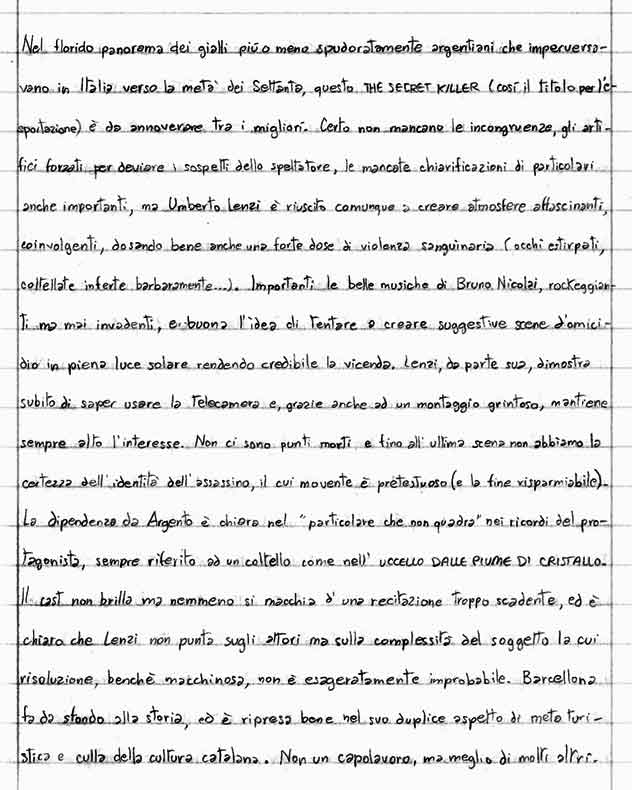 Nel florido panorama dei gialli più o meno spudoratamente argentiani che imperversa-
vano in Italia verso la metà dei Settanta, questo THE SECRET KILLER (così il titolo per l'e-
sportazione) è da annoverare tra i migliori. Certo non mancano le incongruenze, gli arti-
fici forzati per deviare i sospetti dello spettatore, le mancate chiarificazioni di particolari
anche importanti, ma Umberto Lenzi è riuscito comunque a creare atmosfere affascinanti,
coinvolgenti, dosando bene anche una forte dose di violenza sanguinaria (occhi estirpati,
coltellate inferte barbaramente...). Importanti le belle musiche di Bruno Nicolai, rockeggian-
ti ma mai invadenti, e buona l'idea di tentare di creare suggestive scene d'omici-
dio in piena luce solare rendendo credibile la vicenda. Lenzi, da parte sua, dimostra
subito di saper usare la telecamera e, grazie anche ad un montaggio grintoso, mantiene
sempre alto l'interesse. Non ci sono punti morti e fino all'ultima scena non abbiamo la
certezza dell'identità dell'assassino, il cui movente è pretestuoso (e la fine risparmiabile).
La dipendenza da Argento è chiara nel "particolare che non quadra" nei ricordi del pro-
tagonista, sempre riferito ad un coltello come nell' UCCELLO DALLE PIUME DI CRISTALLO.
Il cast non brilla ma nemmeno si macchia d'una recitazione troppo scadente, ed è
chiaro che Lenzi non punta sugli attori ma sulla complessità del soggetto la cui
risoluzione, benchè macchinosa, non è esageratamente improbabile. Barcellona
fa da sfondo alla storia, ed è ripresa bene nel suo duplice aspetto di meta turi-
stica e culla della cultura catalana. Non un capolavoro, ma meglio di molti altri.